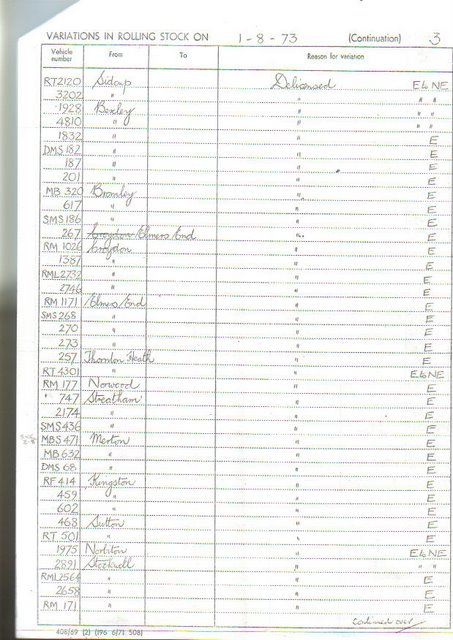 VARIATIONS IN ROLLING STOCK ON 1-8-73 (Continuation) 3
Vehicle number From To Reason for variation
RT2120 Sidcup Delicensed E & NE
3202 " " " "
1928 Bexley " " "
4810 " " " "
1832 " " E
DMS 182 " " E
187 " " E
201 " " E
MB 320 Bromley " E
617 " " E
SMS 186 " " E
267 Croydon/Elmers End " E
RM 1026 Croydon " E
1387 " " E
RML 2732 " " E
2746 " " E
RM 1171 Elmers End " E
SMS 268 " " E
270 " " E
273 " " E
257 Thornton Heath " E
RT 4301 " " E & NE
RM 177 Norwood " E
747 Streatham " E
2174 " " E
SMS 436 " " E
MBS 471 Merton " E
MB 632 " " E
DMS 68 " " E
RF 414 Kingston " E
459 " " E
602 " " E
468 Sutton " E
RT 501 " " E
1975 Norbiton " E & NE
2891 Stockwell " E
RML 2564 " " E
2658 " " E
RM 171 " " E
continued over
408/69 (2) (196 6/71 508)